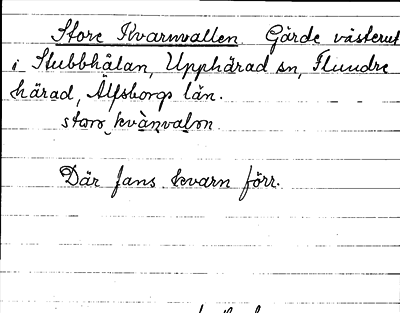 Store Kvarnvallen Gärde västerut
i Stubbhålan, Upphärad sn, Flundre
härad, Älfsborgs län.
storo kvànvalon
Där fans kvarn förr.